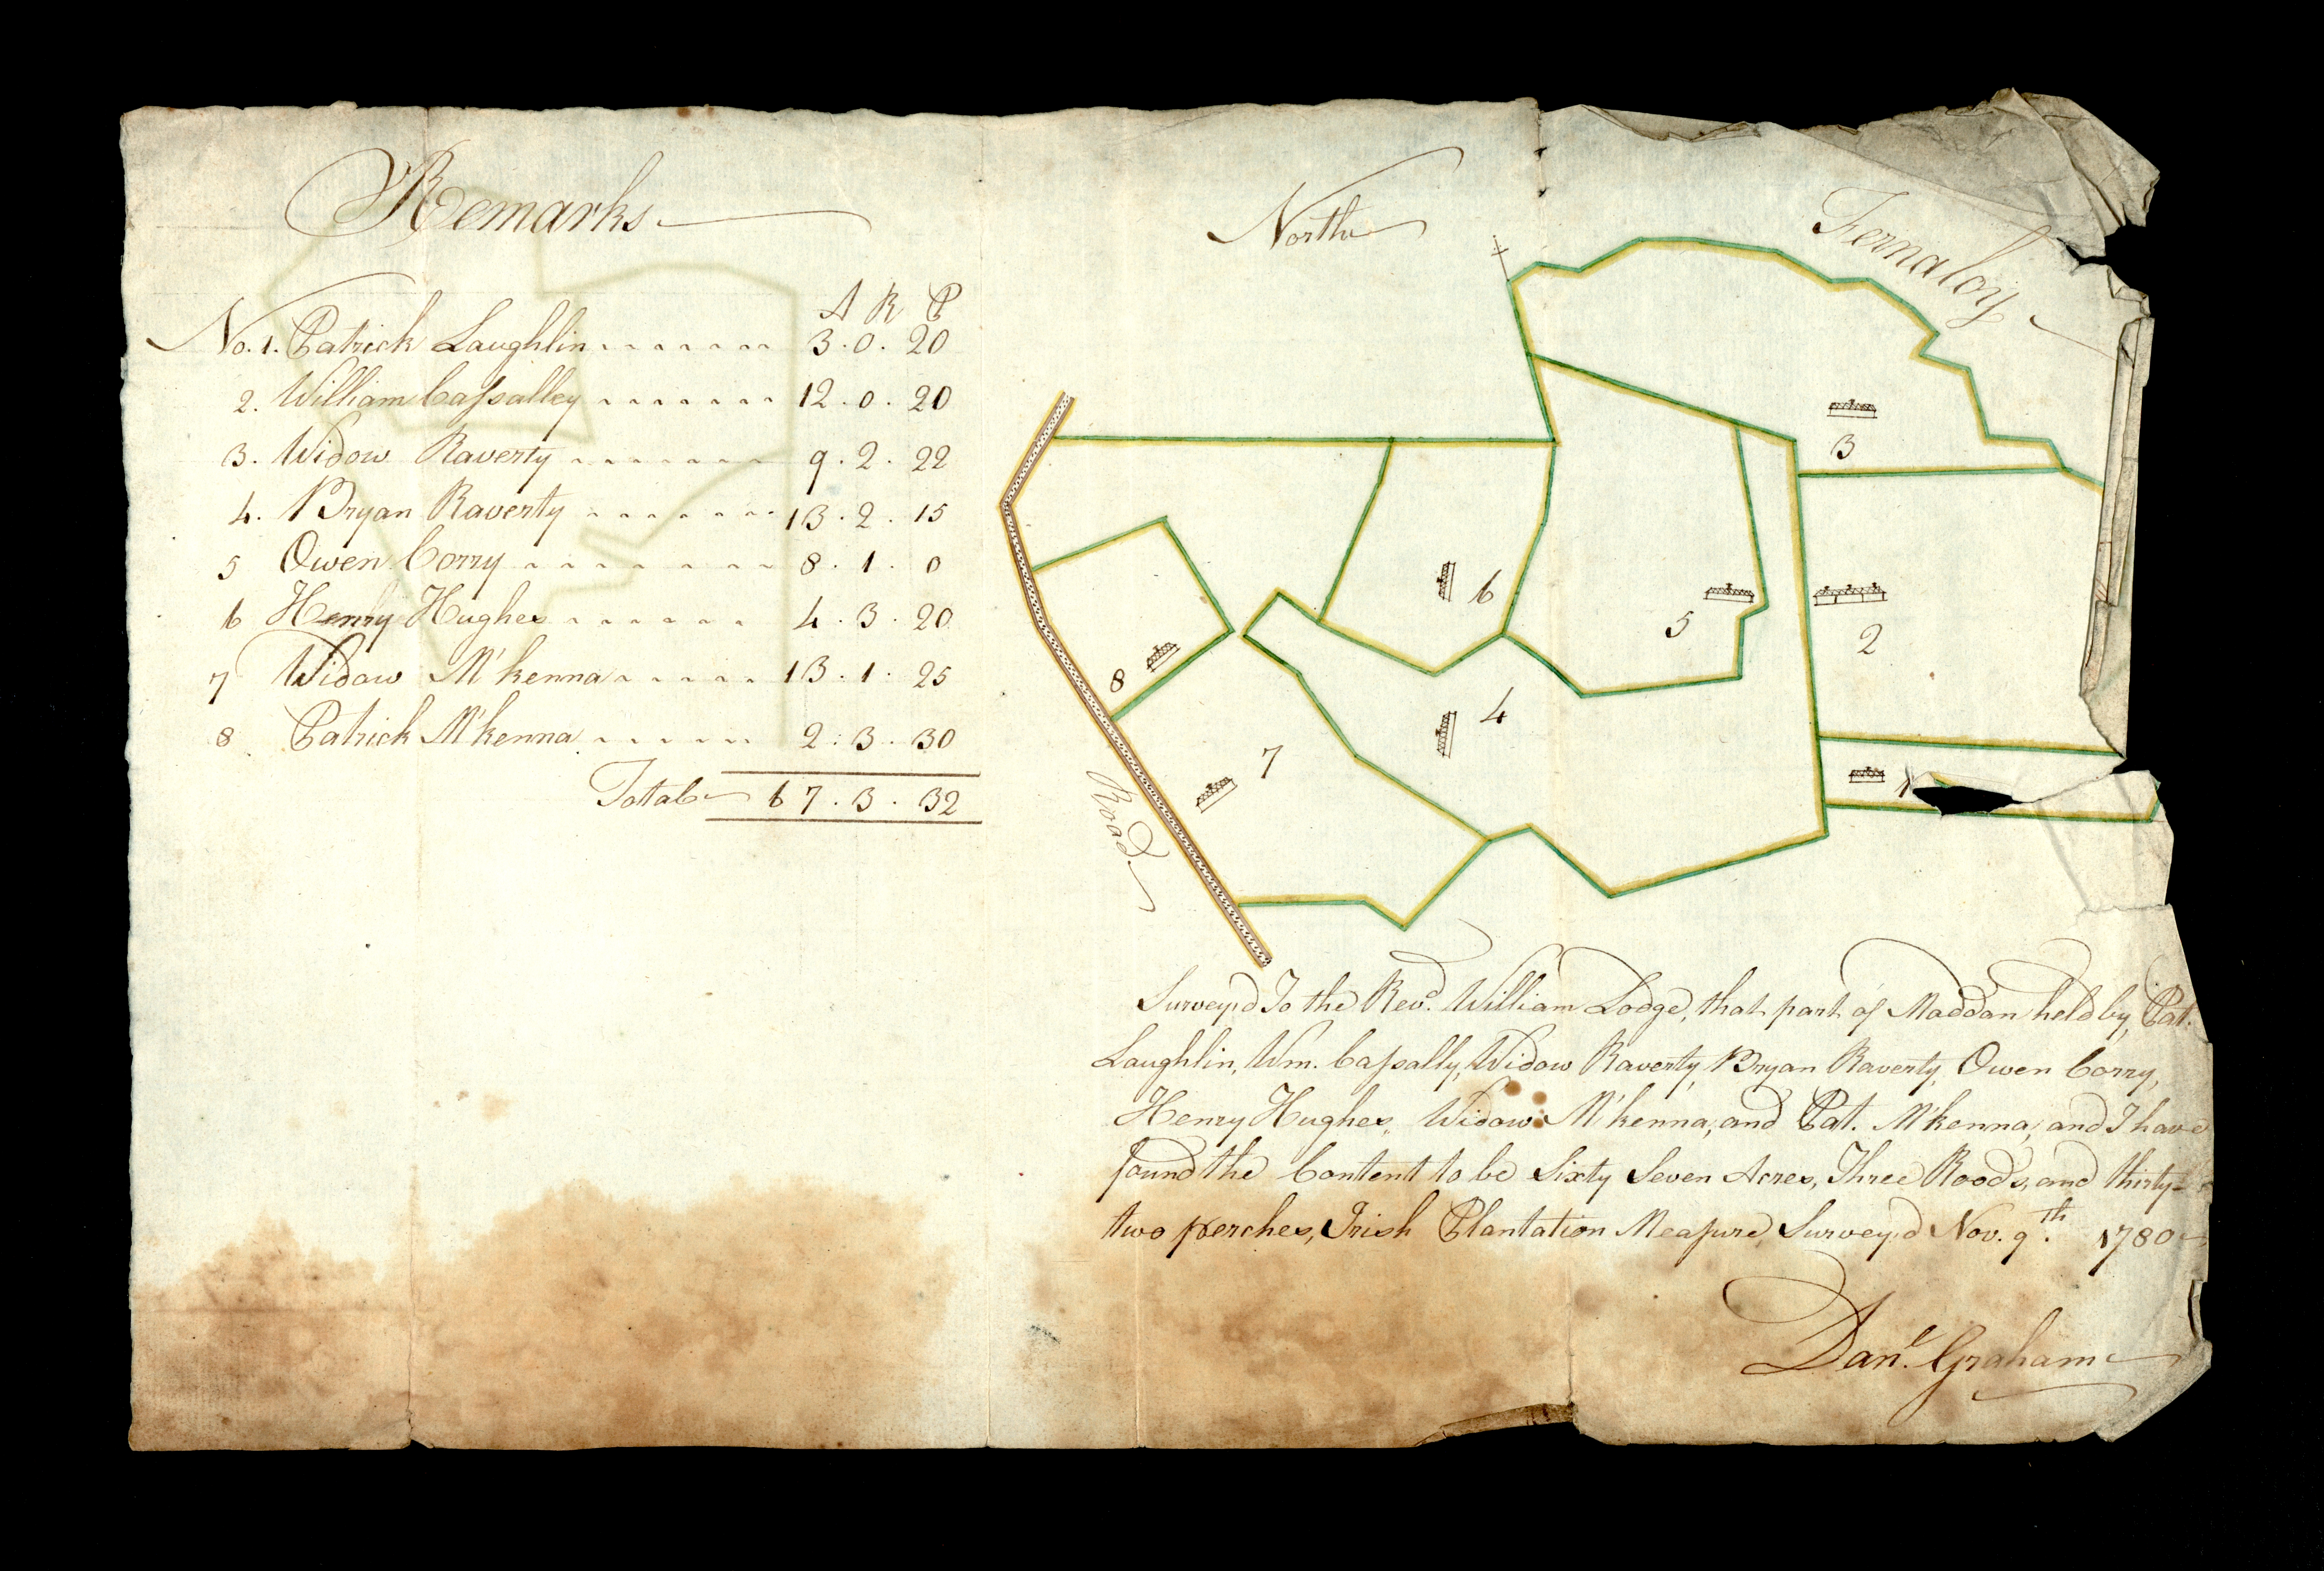 Remarks
A R P
No. 1. Patrick Laughlin 3 . 0 . 20
2. William Caſsalley 12 . 0 . 20
3. Widow Raverty 9 . 2 . 22
4. Bryan Raverty 13 . 2 . 15
5 Owen Corry 8 . 1 . 0
6 Henry Hughes 4 . 3 . 20
7 Widow M'kenna 13 . 1 . 25
8 Patrick M'kenna 2 . 3 . 30
Total 67 . 3 . 32
North
Fernaloy
3
6
5
2
8
4
7
1
Road
Survey'd To the Revd. William Lodge, that part of Maddan held by, Pat.
Laughlin, Wm. Caſsally, Widow Raverty, Bryan Raverty, Owen Corry,
Henry Hughes, Widow M'kenna, and Pat. M'kenna, and I have
found the Content to be Sixty Seven Acres, Three Roods, and thirty-
two perches, Irish Plantation Meaſure, Survey'd Nov. 9th. 1780
Danl. Graham